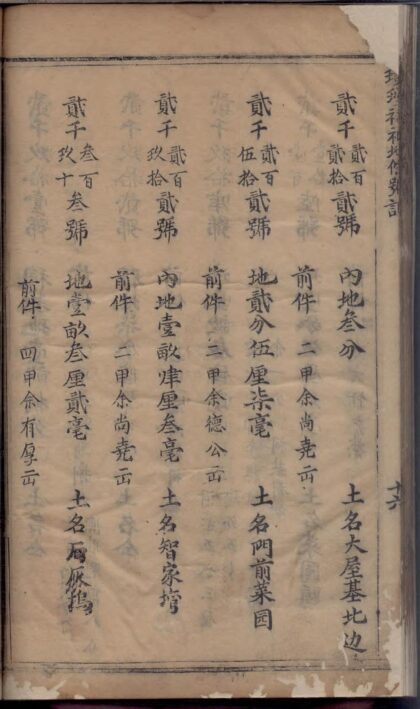 貳千貳百貳拾貳號 內地叁分 土名大屋基北边
前件 二甲余尚堯
貳千貳百伍拾貳號 地貳分伍厘柒毫 土名門前菜园
前件 二甲余德公
貳千貳百玖拾貳號 內地壹畝肆厘叁毫 土名智家塆
前件 二甲余尚堯
貳千叁百玖十叁號 地壹畝叁厘貳毫 土名
前件 四甲余有厚
十六